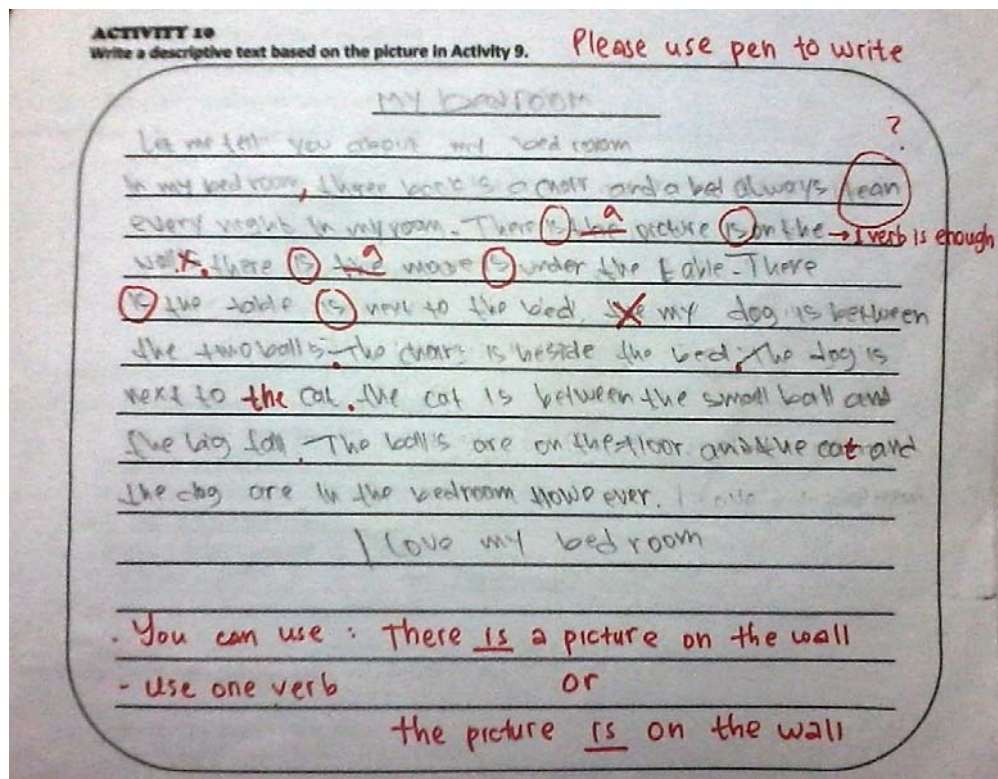 ACTIVITY 10
Write a descriptive text based on the picture in Activity 9. Please use pen to write
My bedroom
Let me tell you about my bedroom
?
In my bedroom, three is a and a bed always
every night In my room. There is the a picture is on the → 1 verb is enough
there is the a mouse is under the table. There
is the table is next to the bed. my dog is between
the two balls. The chair is beside the bed. The dog is
next to the cat. the cat is between the small ball and
the big fall. The ball's are on the floor and the cat and
the dog are In the bedroom However.
I Love my bedroom
. You can use : There is a picture on the wall
- Use one verb or
the picture is on the wall